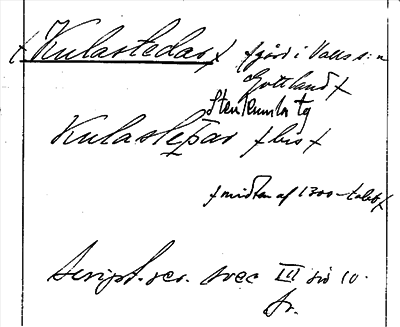 / Kulastedar / / gård i Valls s:n
Gottland /
Stenkumla tg
Kulasteþar / hus /
/ midten af 1300-talet /
Script. rer. svec III sid 10.
Fr.